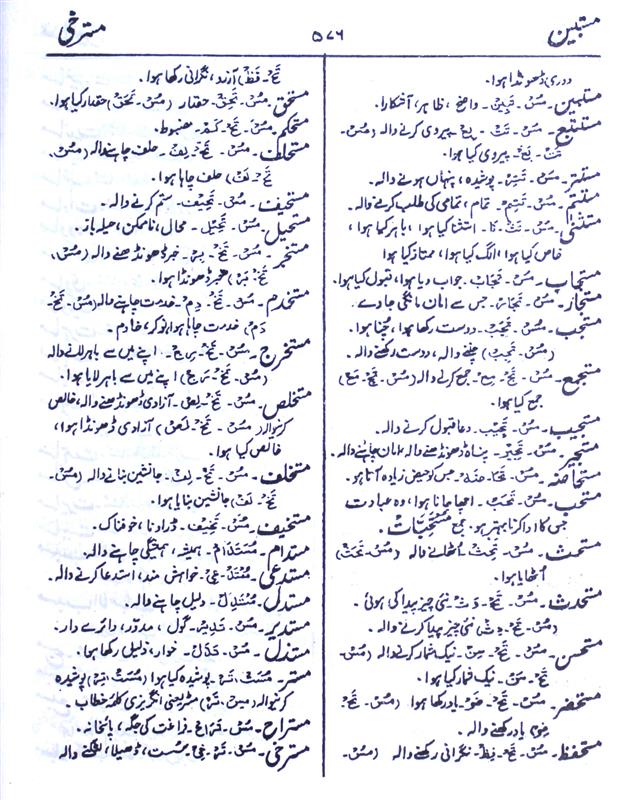 مستبین
۵۷۶
مسترخی
دوری ڈھونڈا ہوا۔
مستبین۔ مُسْ۔ تَبِیْن۔ واضح، ظاہر، آشکارا۔
مستتبع۔ مُسْ۔ تَتْ۔ بِعْ۔ پیروی کرنے والہ (مُسْ۔
تَتْ۔ بَعْ۔ پیروی کیا ہوا۔
مستتر۔ مُسْ۔ تَتِرْ۔ پوشیدہ، پنہاں ہونے والہ۔
مستتم۔ مُسْ۔ تَتِمْ۔ تمام، تمامی کی طلب کرنے والہ۔
مستثنیٰ۔ مُسْ۔ تَثْ۔ نَا۔ استثنا کیا ہوا، باہر کیا ہوا،
خاص کیا ہوا، الگ کیا ہوا، ممتاز کیا ہوا
مستجاب۔ مُسْ۔ تَجَابْ۔ جواب دیا ہوا، قبول کیا ہوا۔
مستجار۔ مُسْ۔ تَجَارْ۔ جس سے امان مانگی جاوے۔
مستجب۔ مُسْ۔ تَجَبْ۔ دوست رکھا ہوا، چنا ہوا
(مُسْ۔ تَجِبْ) چننے والہ، دوست رکھنے والہ۔
مستجمع۔ مُسْ۔ تَجْ۔ مِعْ۔ جمع کرنے والہ (مُسْ۔ تَجْ۔ مَعْ)
جمع کیا ہوا۔
مستجیب۔ مُسْ۔ تَجِیْب۔ دعا قبول کرنے والہ۔
مستجیر۔ مُسْ۔ تَجِیْر۔ پناہ ڈھونڈھنے والہ، امان چاہنے والہ۔
مستحاضہ۔ مُسْ۔ تَحَا۔ ضَہْ۔ جس کو حیض زیادہ آتا ہو۔
مستحب۔ مُسْ۔ تَحَبْ۔ اچھا جانا ہوا، وہ عبادت
جس کا ادا کرنا بہتر ہو۔ جمع مستحبات۔
مستحث۔ مُسْ۔ تَحِثْ۔ اُٹھانے والہ (مُسْ۔ تَحَثْ)
اُٹھایا ہوا۔
مستحدث۔ مُسْ۔ تَحْ۔ دَثْ۔ نئی چیز پیدا کی ہوئی۔
(مُسْ۔ تَحْ۔ دِثْ) نئی چیز پیدا کرنے والہ۔
مستحسن۔ مُسْ۔ تَحْ۔ سِنْ۔ نیک شمار کرنے والہ (مُسْ۔
تَحْ۔ سَنْ۔ نیک شمار کیا ہوا۔
مستحضر۔ مُسْ۔ تَحْ۔ ضَرْ۔ یاد رکھا ہوا (مُسْ۔ تَحْ۔
ضِرْ) یاد رکھنے والہ۔
مستحفظ۔ مُسْ۔ تَحْ۔ فِظْ۔ نگرانی رکھنے والہ (مُسْ۔
تَحْ۔ فَظْ) نگرانی رکھا ہوا۔
مستحق۔ مُسْ۔ تَحِقْ۔ حقدار (مُسْ۔ تَحَقْ) حقدار کیا ہوا۔
مستحکم۔ مُسْ۔ تَحْ۔ کَمْ۔ مضبوط۔
مستحلف۔ مُسْ۔ تَحْ۔ لِفْ۔ حلف چاہنے والہ (مُسْ۔
تَحْ۔ لَفْ) حلف چاہا ہوا۔
مستحیف۔ مُسْ۔ تَحِیْف۔ ستم کرنے والہ۔
مستحیل۔ مُسْ۔ تَحِیْل۔ محال، ناممکن، حیلہ باز۔
مستخبر۔ مُسْ۔ تَخْ۔ بِرْ۔ خبر ڈھونڈھنے والہ (مُسْ۔
تَخْ۔ بَرْ) خبر ڈھونڈا ہوا۔
مستخدم۔ مُسْ۔ تَخْ۔ دِمْ۔ خدمت چاہنے والہ (مُسْ۔ تَخْ۔
دَمْ) خدمت چاہا ہوا، نوکر، خادم۔
مستخرج۔ مُسْ۔ تَخْ۔ رِجْ۔ اپنے میں سے باہر لانے والہ
(مُسْ۔ تَخْ۔ رَجْ) اپنے میں سے باہر لایا ہوا۔
مستخلص۔ مُسْ۔ تَخْ۔ لِصْ۔ آزادی ڈھونڈھنے والہ، خالص
کرنیوالہ (مُسْ۔ تَخْ۔ لَصْ) آزادی ڈھونڈھا ہوا،
خالص کیا ہوا۔
مستخلف۔ مُسْ۔ تَخْ۔ لِفْ۔ جانشین بنانے والہ (مُسْ۔
تَخْ۔ لَفْ) جانشین بنایا ہوا۔
مستخیف۔ مُسْ۔ تَخِیْف۔ ڈراونا، خوفناک۔
مستدام۔ مُسْتَدَامْ۔ ہمیشہ، ہمیشگی چاہنے والہ۔
مستدعی۔ مُسْتَدْ۔ عِیْ۔ خواہش مند، استدعا کرنے والہ۔
مستدل۔ مُسْتَدِلْ۔ دلیل چاہنے والہ۔
مستدیر۔ مُسْ۔ تَدِیْر۔ گول، مدوّر، دائرے دار۔
مستذل۔ مُسْ۔ تَذَلْ۔ خوار، ذلیل رکھا ہوا۔
مستر۔ مُسَتْ۔ تَرْ۔ پوشیدہ کیا ہوا (مُسَتْ۔ تِرْ) پوشیدہ
کرنیوالہ (مِسْ۔ تَرْ) مسٹر یعنی انگریزی کلمۂ خطاب۔
مستراح۔ مُسْ۔ تَرَاحْ۔ فراغت کی جگہ، پائخانہ۔
مسترخی۔ مُسْ۔ تَرْ۔ خِیْ۔ سُست، ڈھیلا، لٹکنے والہ